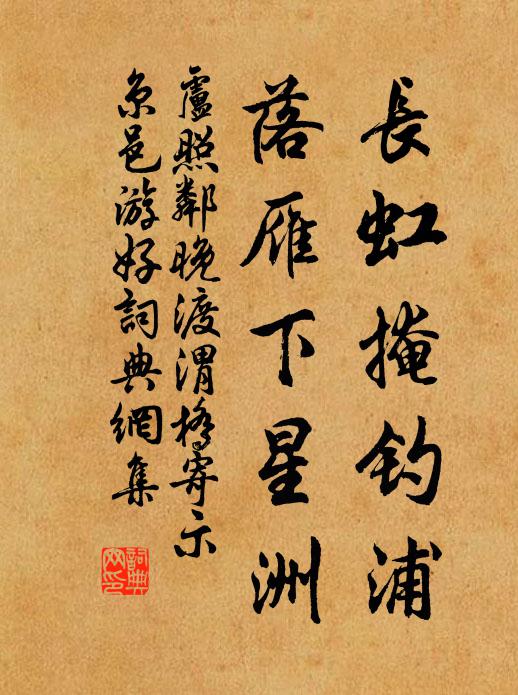 長虹掩釣浦
落雁下星洲
盧照鄰晚渡渭橋寄示
京邑游好詞典網集
詞典
網印